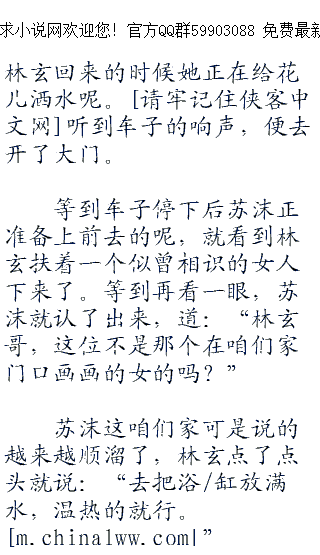 求小说网欢迎您! 官方QQ群59903088 免费最新
林玄回来的时候她正在给花
儿洒水呢。[请牢记住侠客中
文网]听到车子的响声，便去
开了大门。
等到车子停下后苏沫正
准备上前去的呢，就看到林
玄扶着一个似曾相识的女人
下来了。等到再看一眼，苏
沫就认了出来，道：“林玄
哥，这位不是那个在咱们家
门口画画的女的吗？”
苏沫这咱们家可是说的
越来越顺溜了，林玄点了点
头就说：“去把浴/缸放满
水，温热的就行。
[m.chinalww.com]”